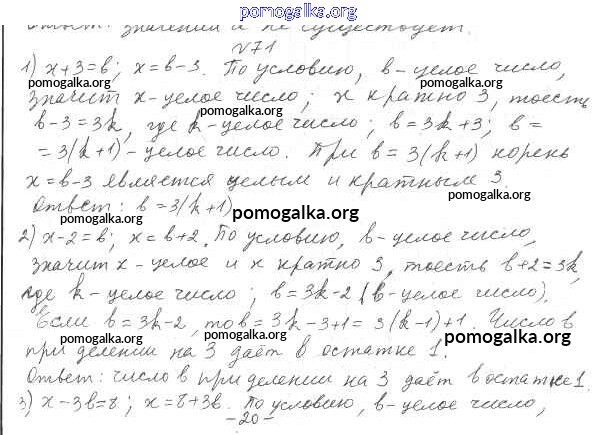 pomogalka.org
Ответ: значений и не существует.
№71
1) x+3=в; x=в-3. По условию, в-целое число,
pomogalka.org pomogalka.org
значит x-целое число; x кратно 3, тоесть
pomogalka.org
в-3=3k, где k-целое число; в=3k+3; в=
=3(k+1)-целое число. При в=3(k+1) корень
x=в-3 является целым и кратным 3.
pomogalka.org
Ответ: в=3(k+1)
pomogalka.org
2) x-2=в; x=в+2. По условию, в-целое число,
pomogalka.org
значит x-целое и x кратно 3, тоесть в+2=3k,
где k-целое число; в=3k-2 (в-целое число),
pomogalka.org pomogalka.org
Если в=3k-2, то в=3k-3+1=3(k-1)+1. Число в
pomogalka.org
при делении на 3 даёт в остатке 1.
Ответ: число в при делении на 3 даёт в остатке 1.
3) x-3в=8; x=8+3в. По условию, в-целое число,
pomogalka.org
-20-